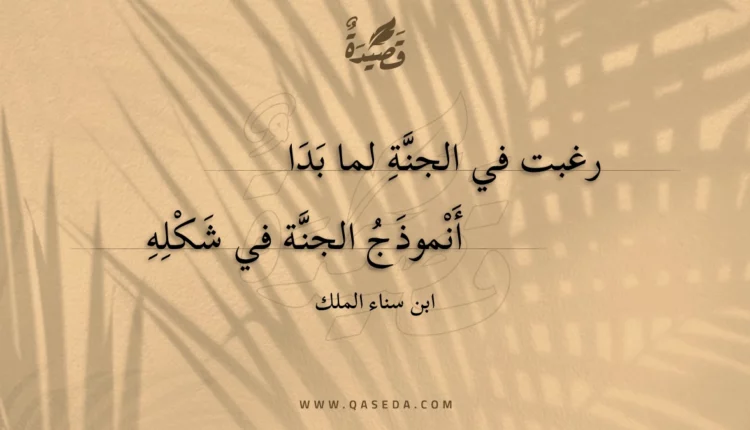 قَصِيدَةٌ
رغبت في الجنَّةِ لما بَدَا
أَنْموذَجُ الجنَّة في شَكْلِهِ
ابن سناء الملك
WWW.QASEDA.COM